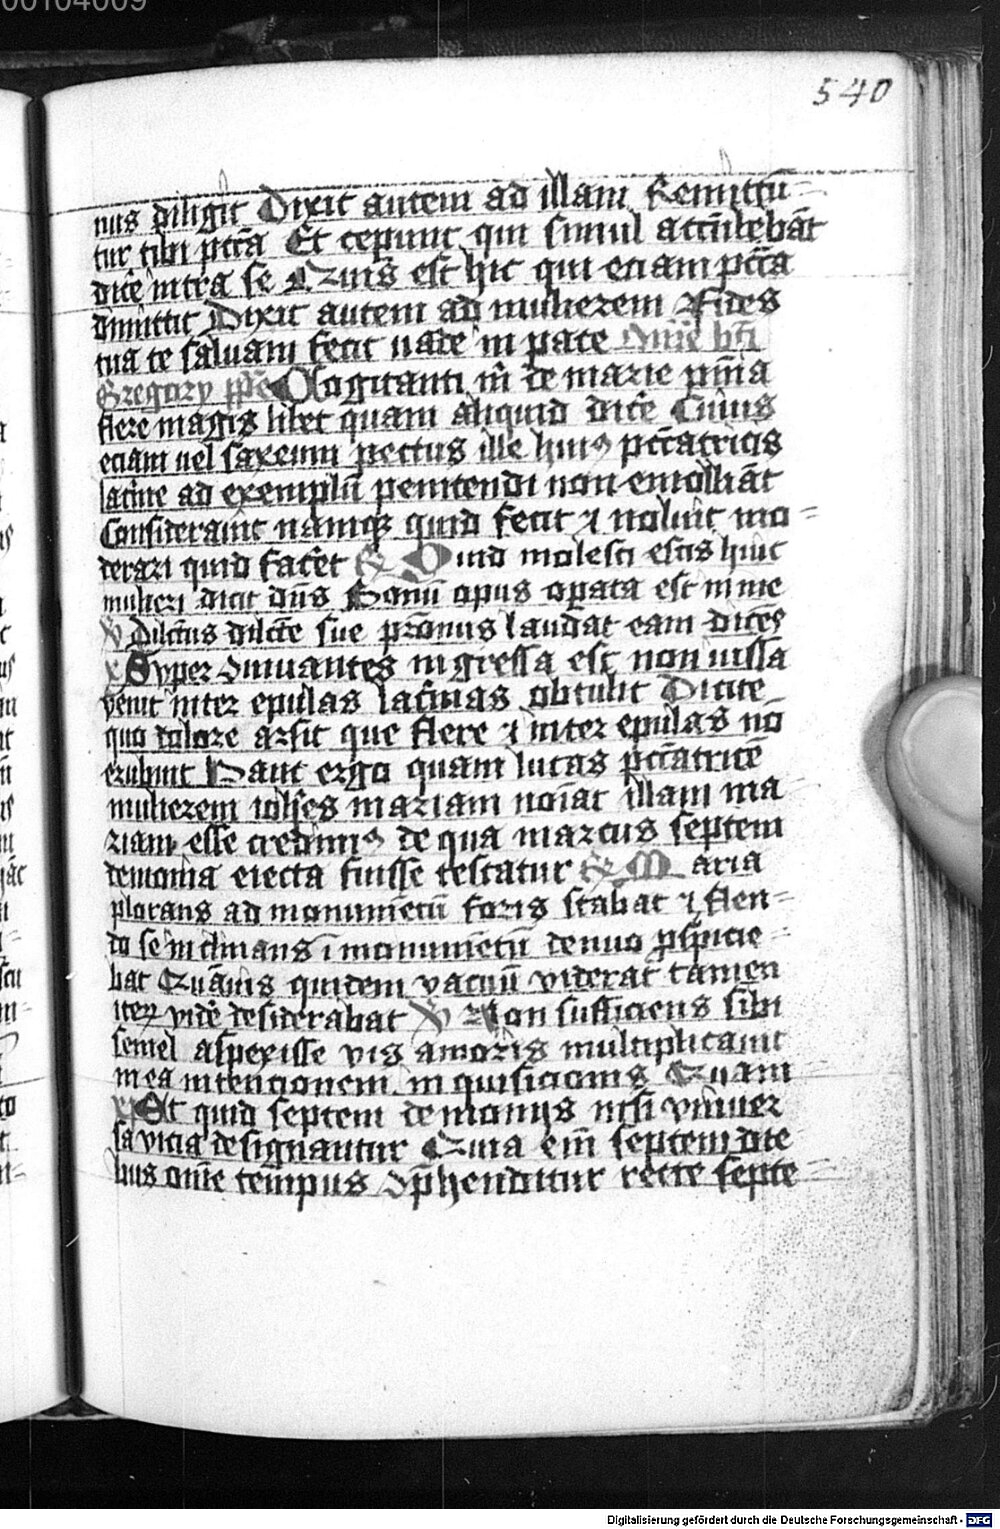 00104009
540
nus diligit Dixit autem ad illam Remittū=
tur tibi pctā Et ceperunt qui simul accūbebāt
dicē intra se Quis est hic qui eciam pctā
dimittit Dixit autem ad mulierem Fides
tua te saluam fecit uade in pace Omīe bti
Gregory ppe Cogitanti m̄ de marie pnīa
flere magis libet quam aliquid dicē Cuius
eciam uel saxeum pectus ille huiꝰ pctatricis
lacrīe ad exemplū penitendi non emolliāt
Considerauit namqꝫ quid fecit ⁊ noluit mo=
derari quid facēt Quid molesti estis huic
mulieri dicit dn̄s Bonū opus opata est in me
V Dilctus dilcte sue pronus laudat eam dicēs
x Super conuiuantes ingressa est non iussa
venit inter epulas lacīmas obtulit Dicite
quo dolore arsit que flere ⁊ inter epulas nō
erubuit Hanc ergo quam lucas pctatricē
mulierem iohēs mariam noīat illam ma
riam esse credimꝰ de qua marcus septem
demonia eiecta fuisse testatur Maria
plorans ad monumētū foris stabat ⁊ flen=
do se inclinans ī monumētū denuo pspicie=
bat Quāuis quidem vacuū viderat tamen
iteꝝ vidē desiderabat V Non sufficiens sibi
semel aspexisse vis amoris multiplicauit
in ea intencionem inquisicionis Quam
xi Et quid septem demonijs nisi vniuer
sa vicia designantur Quia em̄ septem die=
bus om̄e tempus cōp̄henditur recte septe=
Digitalisierung gefördert durch die Deutsche Forschungsgemeinschaft - DFG